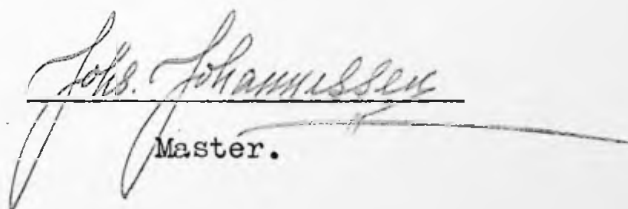 Johs. Johannessen
Master.